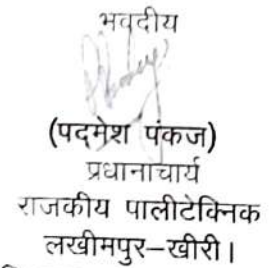 भवदीय
(पदमेश पंकज)
प्रधानाचार्य
राजकीय पालीटेक्निक
लखीमपुर–खीरी।